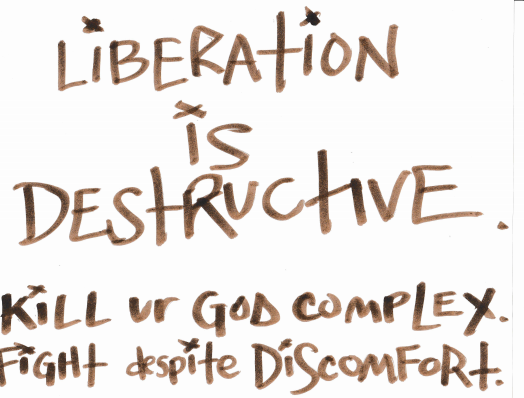 LiBERAtiON
is
DEStRuctiVE.
KiLL ur GOD COMPLEX.
FiGHt despite DiSCOMFORt.